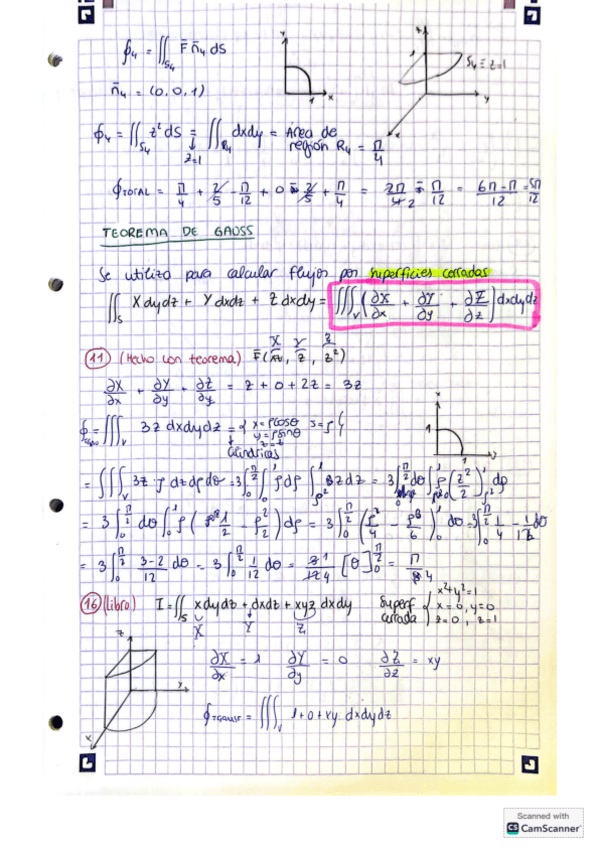 ϕ₄ = ∬_S₄ F̄ n̄₄ dS
y
1
x
z
S₄ ≡ z=1
y
x
n̄₄ = (0,0,1)
ϕ₄ = ∬_S₄ z² dS = ∬_R₄ dxdy = Área de región R₄ = π/4
z=1
ϕTOTAL = π/4 + 2/5 - π/12 + 0 - 2/5 + π/4 = 2π/4 - π/12 = 6π-π/12 = 5π/12
TEOREMA DE GAUSS
Se utiliza para calcular flujos por superficies cerradas
∬_S X dydz + Y dxdz + Z dxdy = ∭_V (∂X/∂x + ∂Y/∂y + ∂Z/∂z) dxdydz
X Y Z
11 (Hecho con teorema) F̄(xz, z, z²)
∂X/∂x + ∂Y/∂y + ∂Z/∂y = z + 0 + 2z = 3z
x
1
1
x
∭_V 3z dxdydz = { x=ρcosθ y=ρsinθ z=z J=ρ {
Cilíndricas
= ∭_V 3z ρ dz dρ dθ = 3∫₀^π/2 ∫₀¹ ρdρ ∫_ρ²¹ 3zdz = 3∫₀^π/2 dθ ∫₀¹ ρ (z²/2)_ρ²¹ dρ
= 3∫₀^π/2 dθ ∫₀¹ ρ (1/2 - ρ²/2) dρ = 3∫₀^π/2 (ρ²/4 - ρ⁶/6)₀¹ dθ = 3∫₀^π/2 1/4 - 1/12 dθ
= 3∫₀^π/2 3-2/12 dθ = 3∫₀^π/2 1/12 dθ = 3/12 [θ]₀^π/2 = π/8
16 (Libro) I = ∬_S x dydz + dxdz + xyz dxdy Superf cerrada { x²+y²=1
x=0, y=0
z=0, z=1
X Y Z
z
y
x
∂X/∂x = 1 ∂Y/∂y = 0 ∂Z/∂z = xy
ϕTGAUSS = ∭_V 1+0+xy dxdydz
Scanned with
CS CamScanner